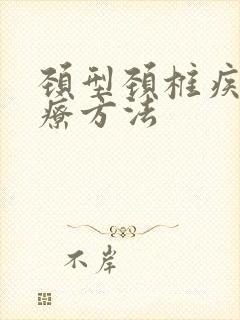 颈型颈椎疾
疗方法
不岸